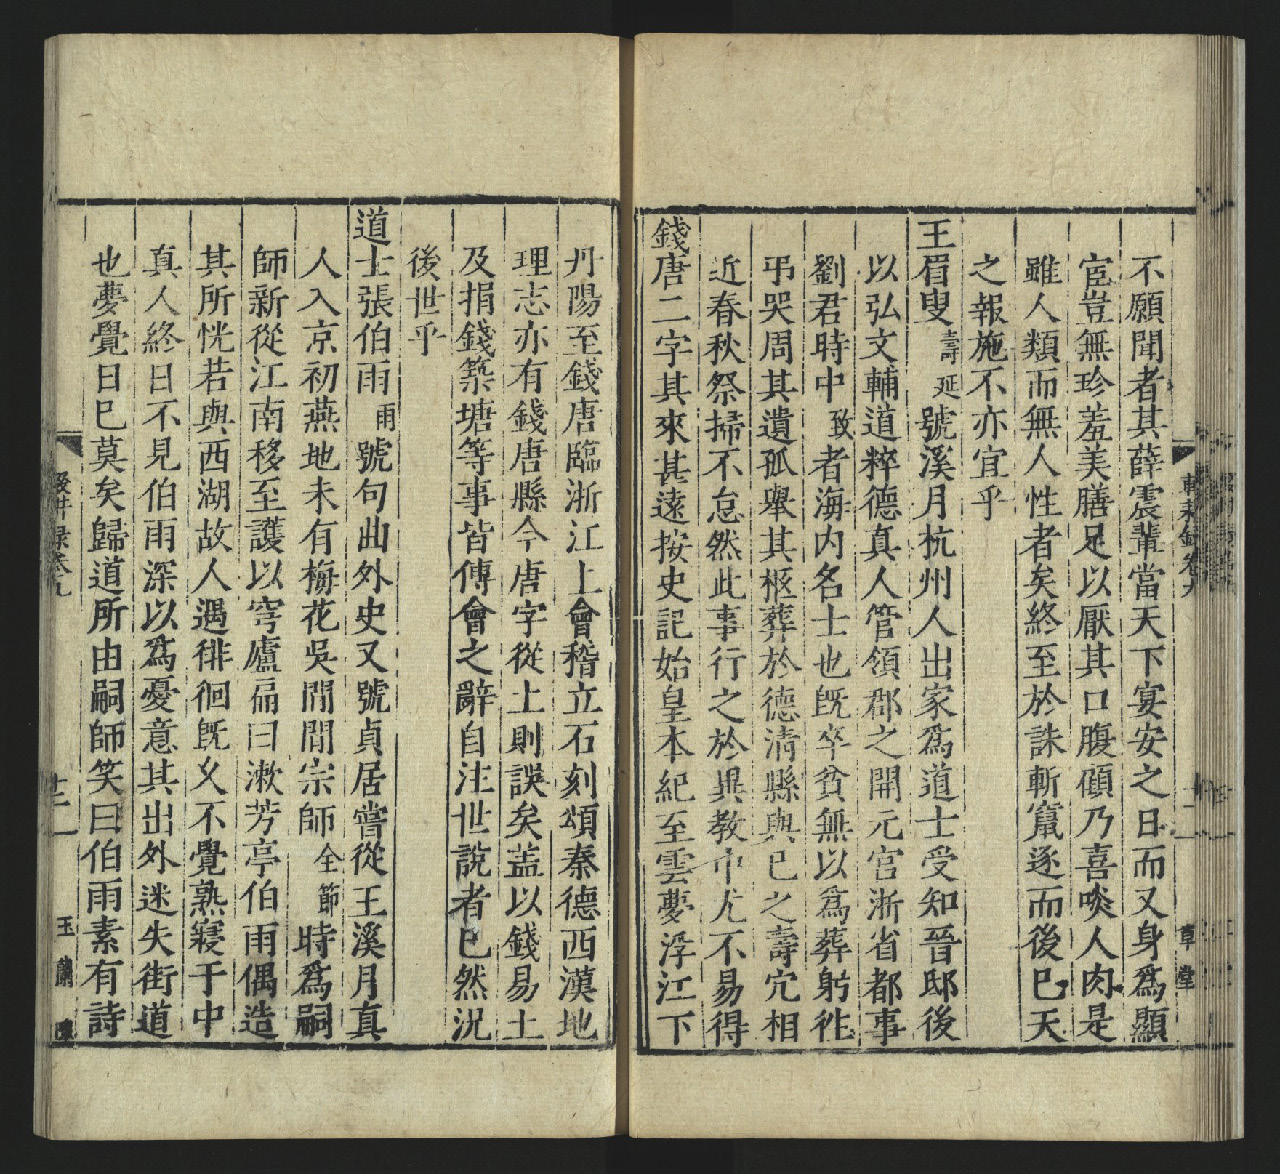 不願聞者其薛震輩當天下宴安之日而又身爲顯
宦豈無珍羞美膳足以厭其口腹顧乃喜啖人肉是
雖人類而無人性者矣終至於誅斬竄逐而後已天
之報施不亦宜乎
王眉叟壽延號溪月杭州人出家爲道士受知晉邸後
以弘文輔道粹德真人管領郡之開元宮浙省都事
劉君時中致者海内名士也旣卒貧無以爲葬躬徃
弔哭周其遺孤舉其柩葬於德清縣與已之壽穴相
近春秋祭掃不怠然此事行之於異教中尤不易得
錢唐二字其來甚遠按史記始皇本紀至雲夢浮江下
丹陽至錢唐臨浙江上會稽立石刻頌秦德西漢地
理志亦有錢唐縣今唐字從土則誤矣葢以錢易土
及捐錢築塘等事皆傅會之辭自注世說者已然況
後世乎
道士張伯雨雨號句曲外史又號貞居嘗從王溪月真
人入京初燕地未有梅花吳閒閒宗師全節時爲嗣
師新從江南移至護以穹廬扁曰漱芳亭伯雨偶造
其所恍若與西湖故人遇徘徊旣久不覺熟寝于中
真人終日不見伯雨深以爲憂意其出外迷失街道
也夢覺日已莫矣歸道所由嗣師笑曰伯雨素有詩
輟耕錄卷九
十二
玉蘭
草堂